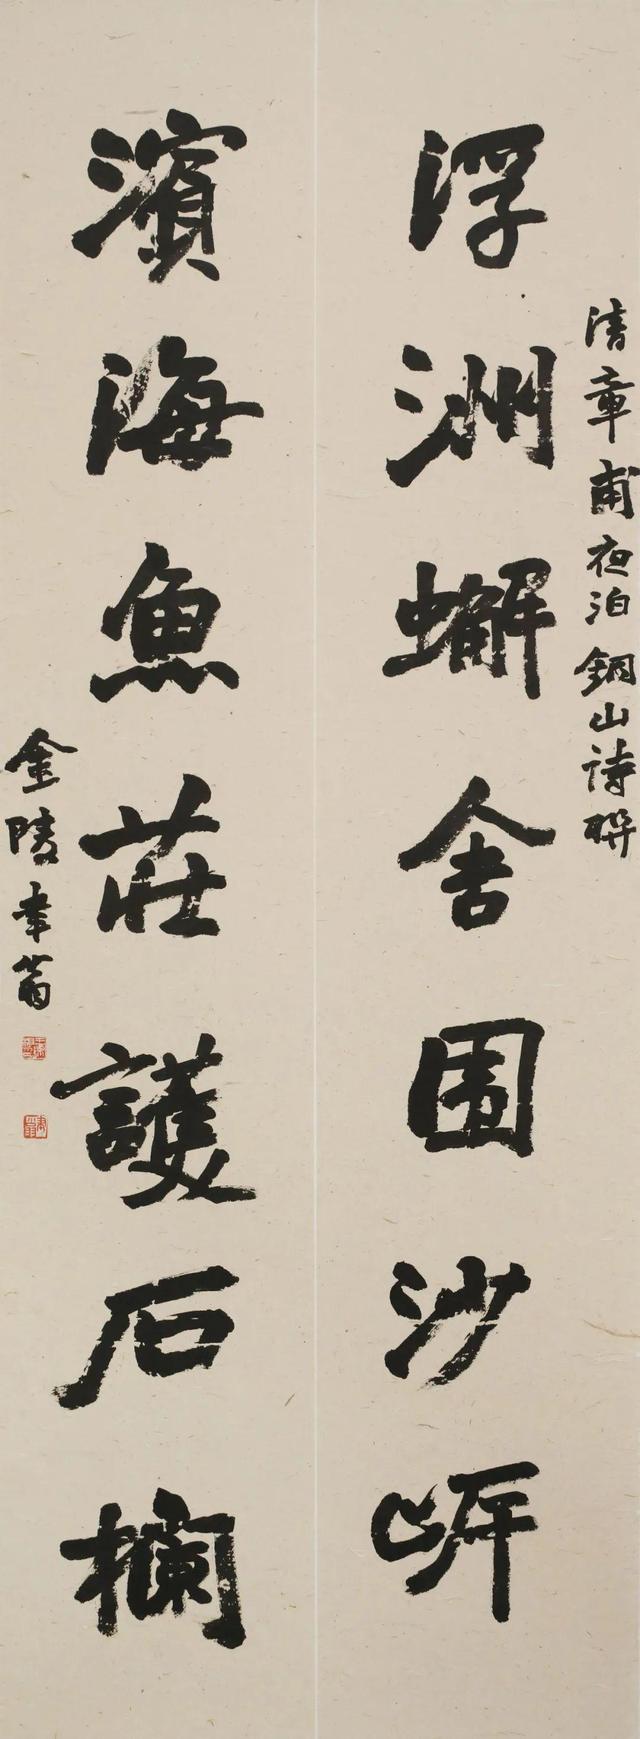 清章甫夜泊銅山詩聯
浮洲蠏舍围沙岸
濱海魚莊護石欄
金陵